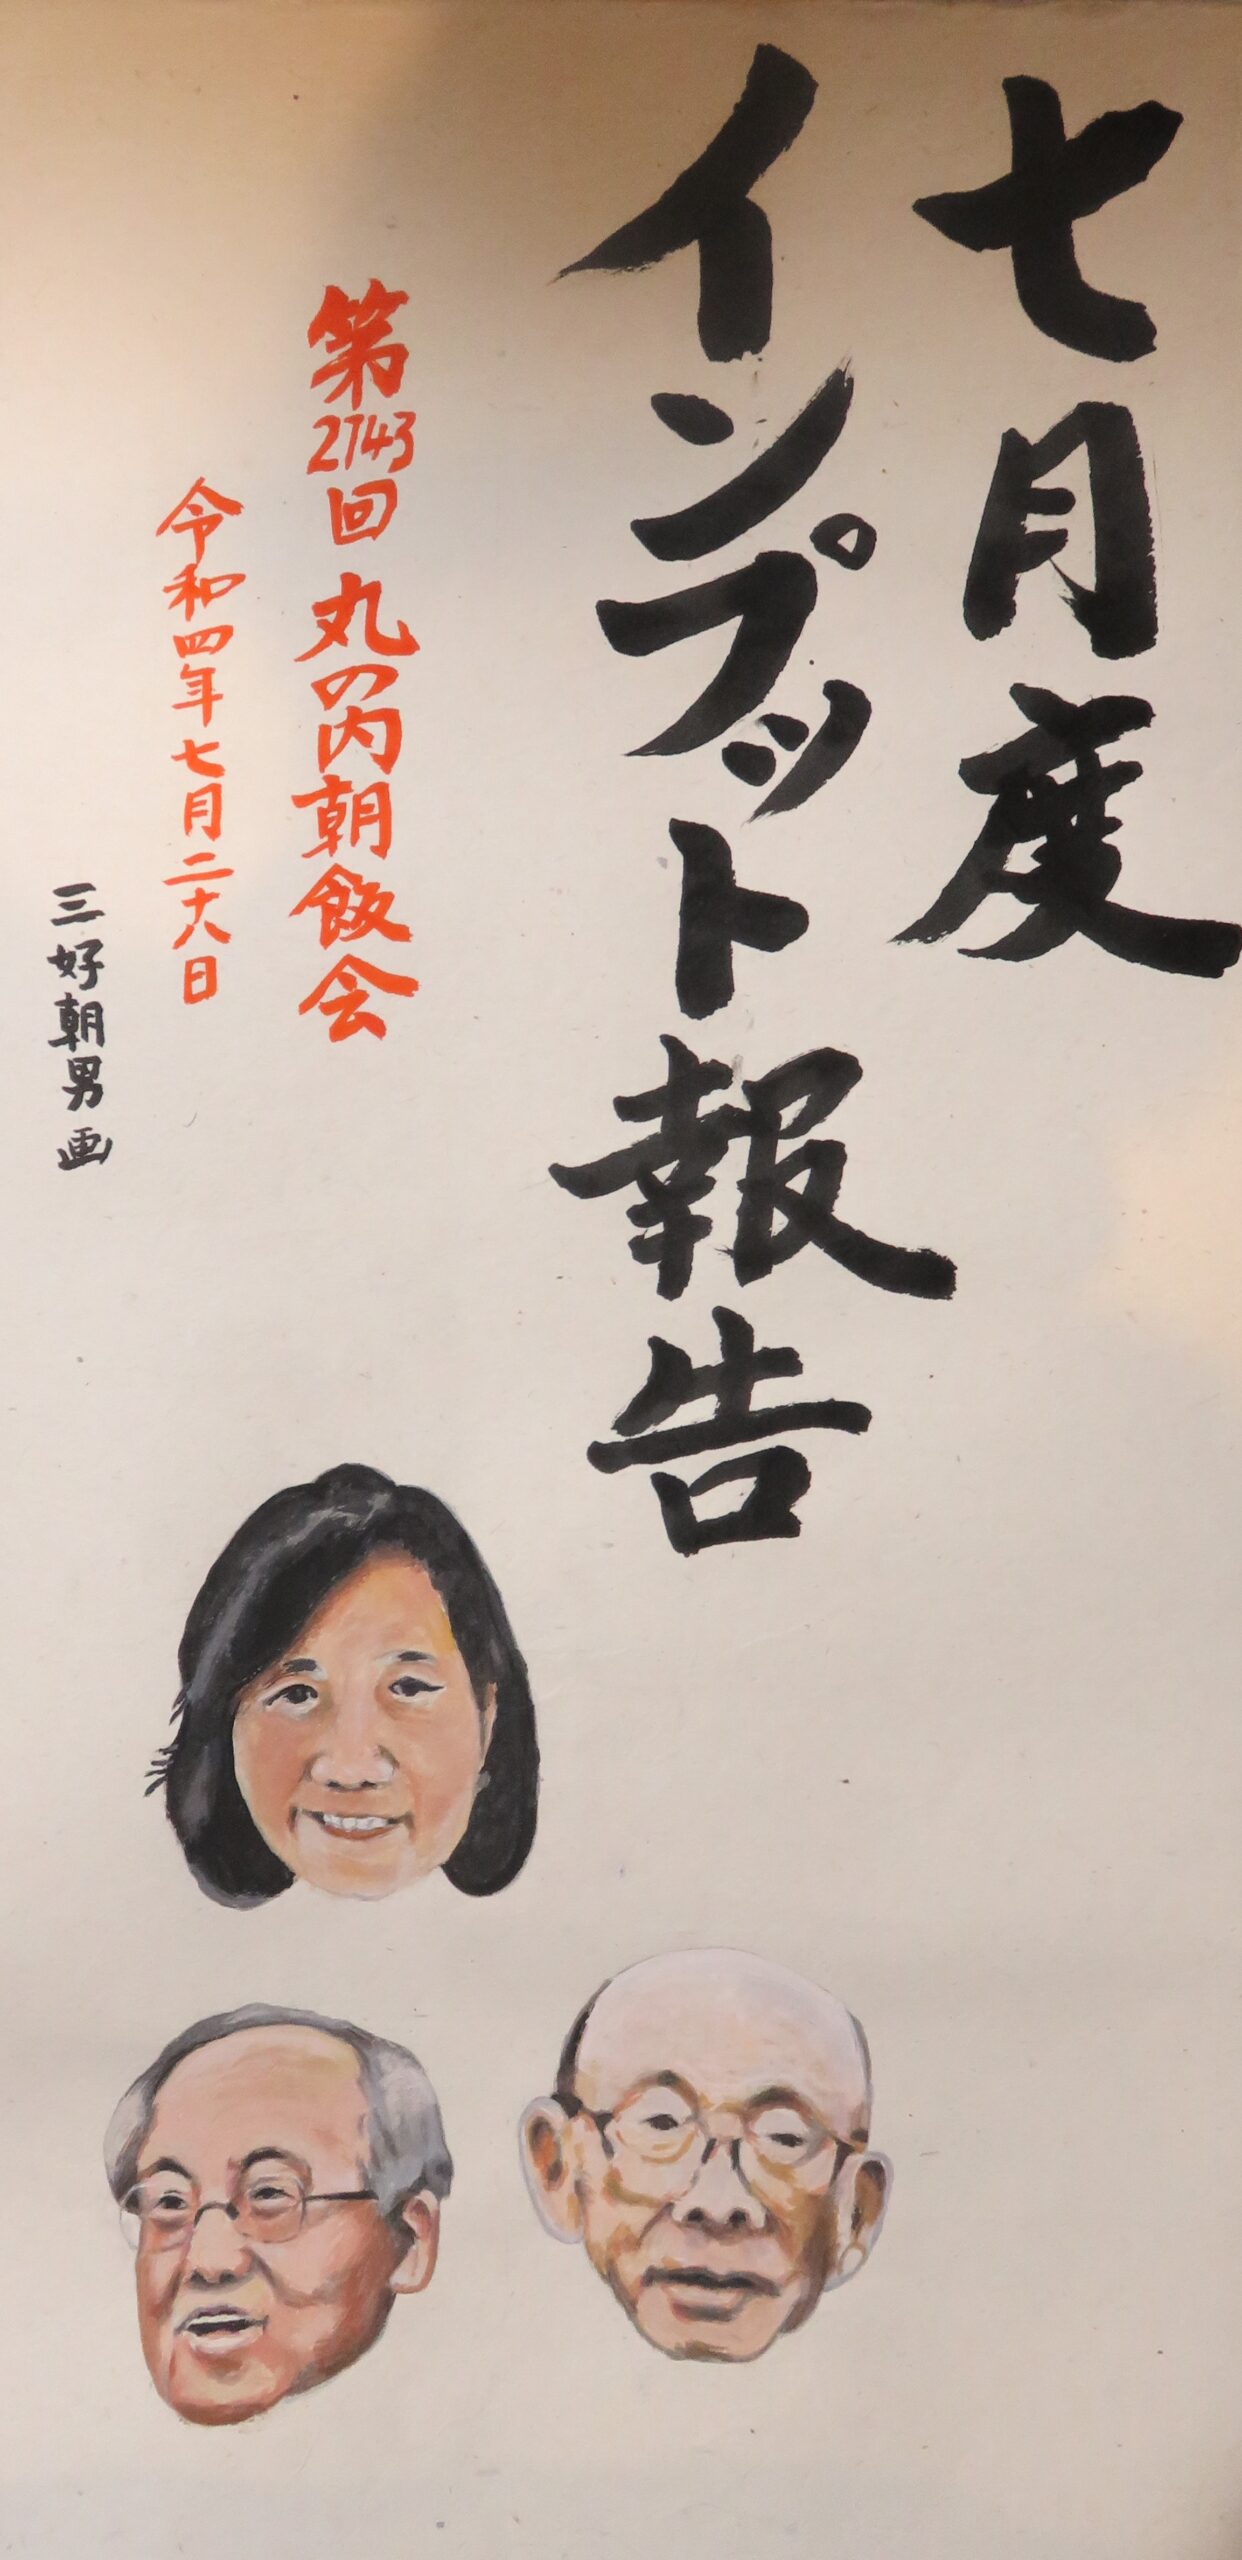 七月度
インプット報告
第2743回 丸の内朝飯会
令和四年七月二十八日
三好朝男画